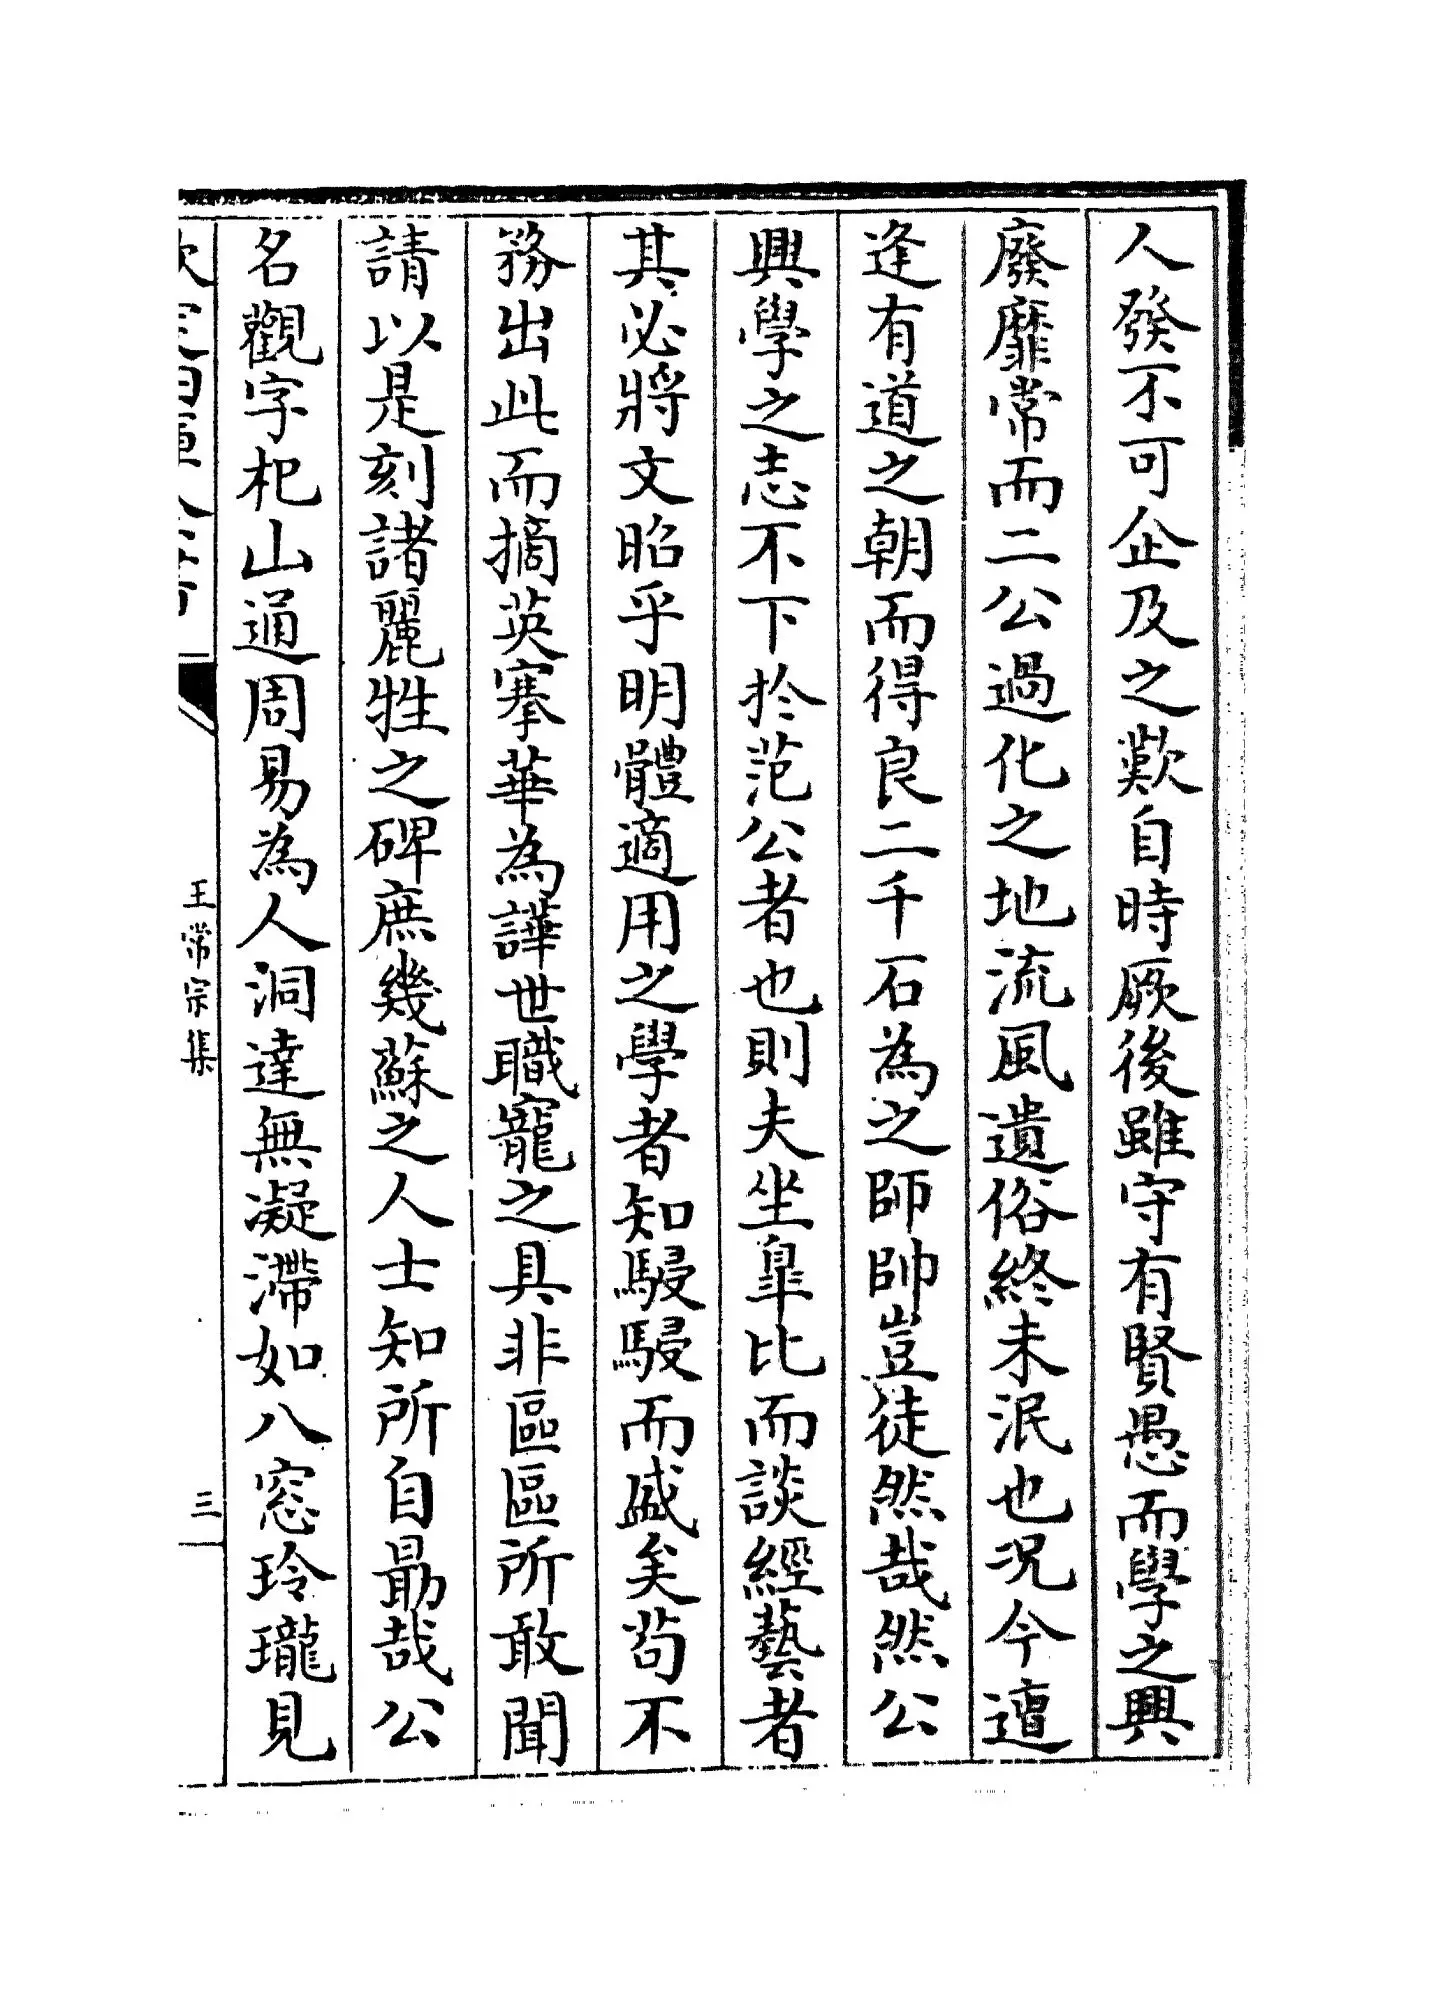 人發不可企及之歎自時厥後雖守有賢愚而學之興
廢靡常而二公過化之地流風遺俗終未泯也况今遭
逢有道之朝而得良二千石為之師帥豈徒然哉然公
興學之志不下於范公者也則夫坐臯比而談經藝者
其必將文昭乎明體適用之學者知駸駸而盛矣茍不
務出此而摘英搴華為譁世職寵之具非區區所敢聞
請以是刻諸麗牲之碑庶幾蘇之人士知所自勗哉公
名觀字杞山通周易為人洞達無凝滯如八窓玲瓏見
王常宗集
三